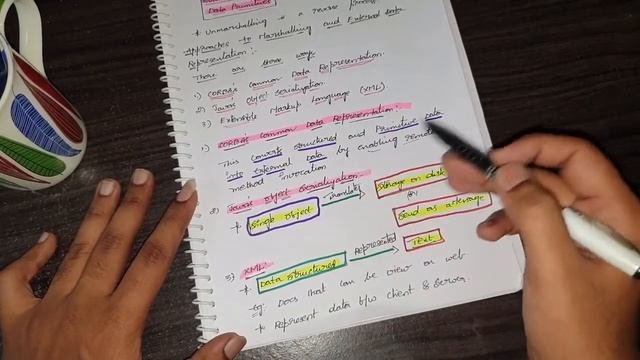 Data Primitives
* Unmarshalling is a reverse process
Approaches to Marshalling and External Data
Representation:-
There are three ways
1) CORBA's Common Data Representation.
2) Java's Object Serialization
3) Extensible Markup Language (XML)
1) CORBA's Common Data Representation:-
This converts structured and Primitive data
into External Data by enabling remote
method invocation
2) Java's Object Serialization:-
* Single Object translate Storage on disk
(or)
Send as a message
3) XML:-
* Data structured Represented text
Eg: Docs that can be view on web
* Represent data b/w client & server.